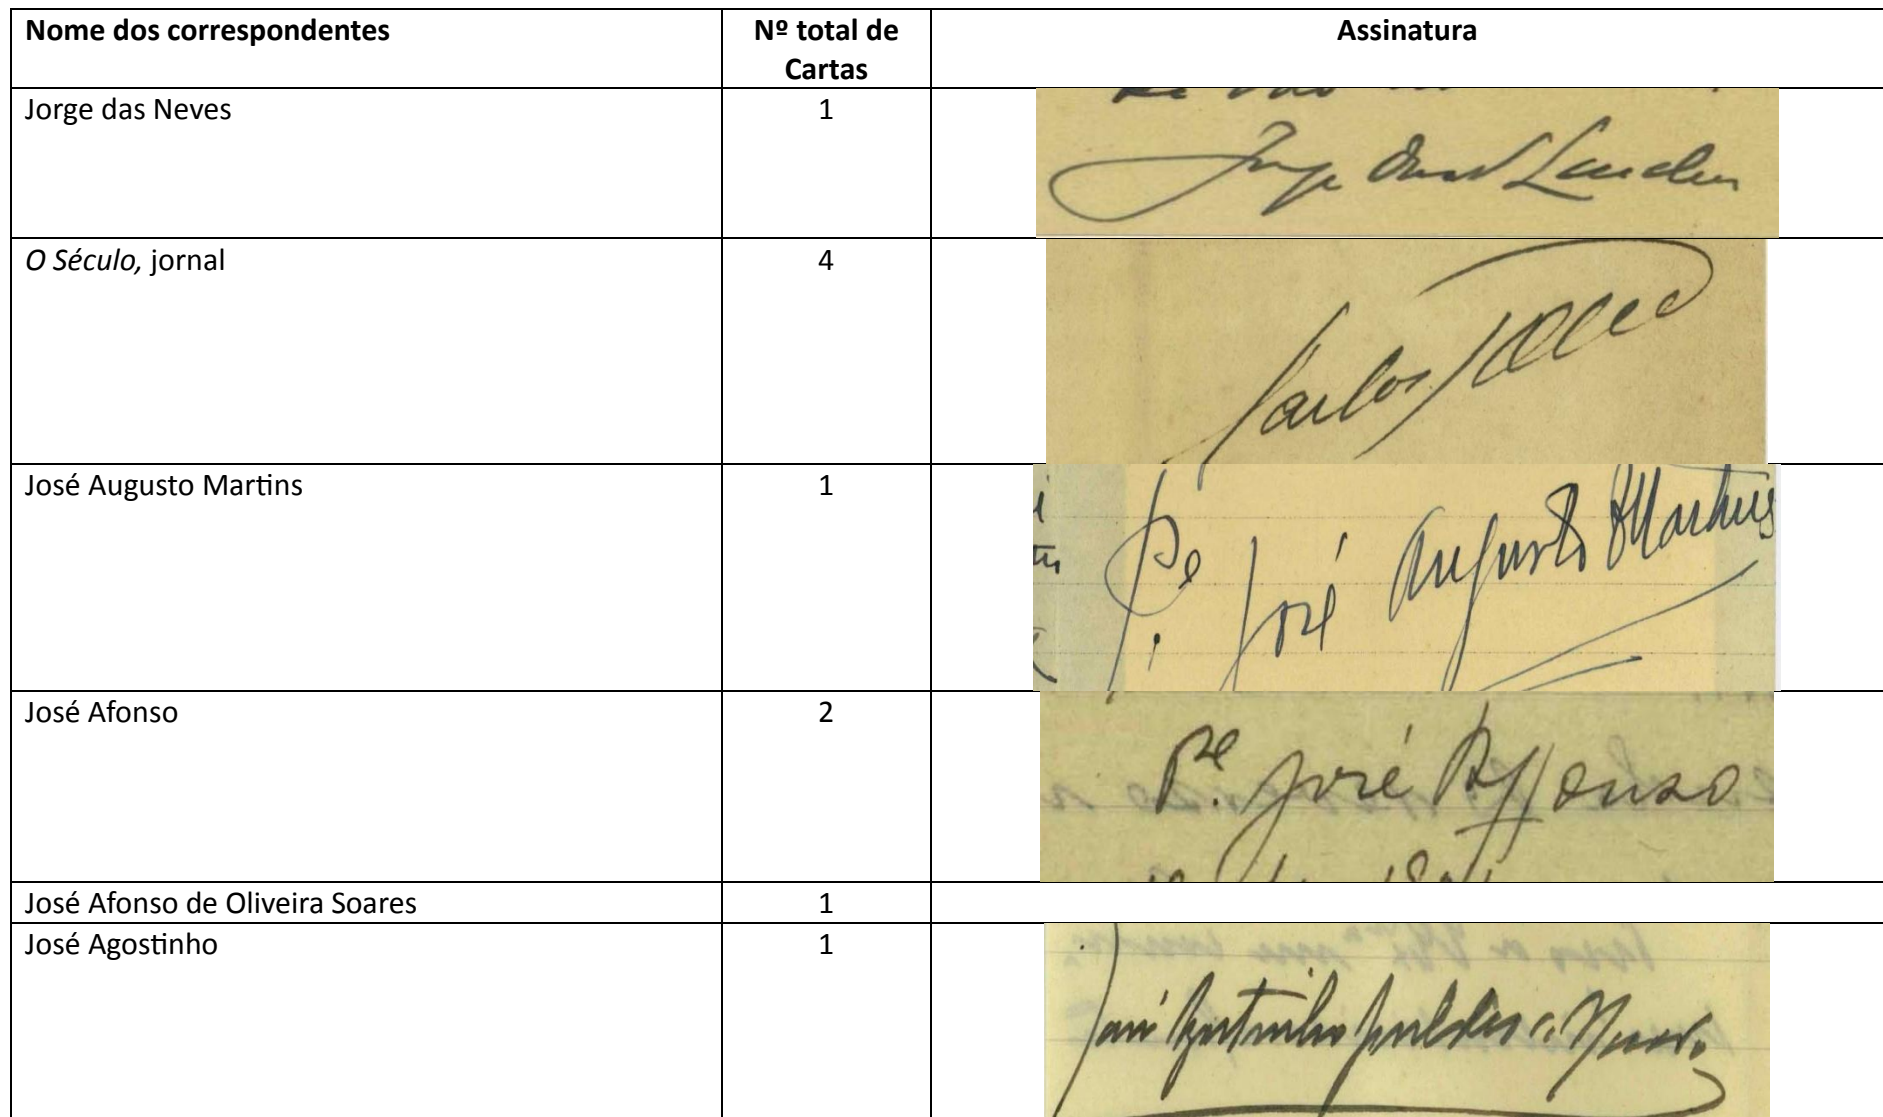 Nome dos correspondentes
Nº total de Cartas
Assinatura
Jorge das Neves
1
O Século, jornal
4
Carlos
José Augusto Martins
1
Pe. José Augusto Martins
José Afonso
2
Pe. José Affonso
José Afonso de Oliveira Soares
1
José Agostinho
1
José Agostinho